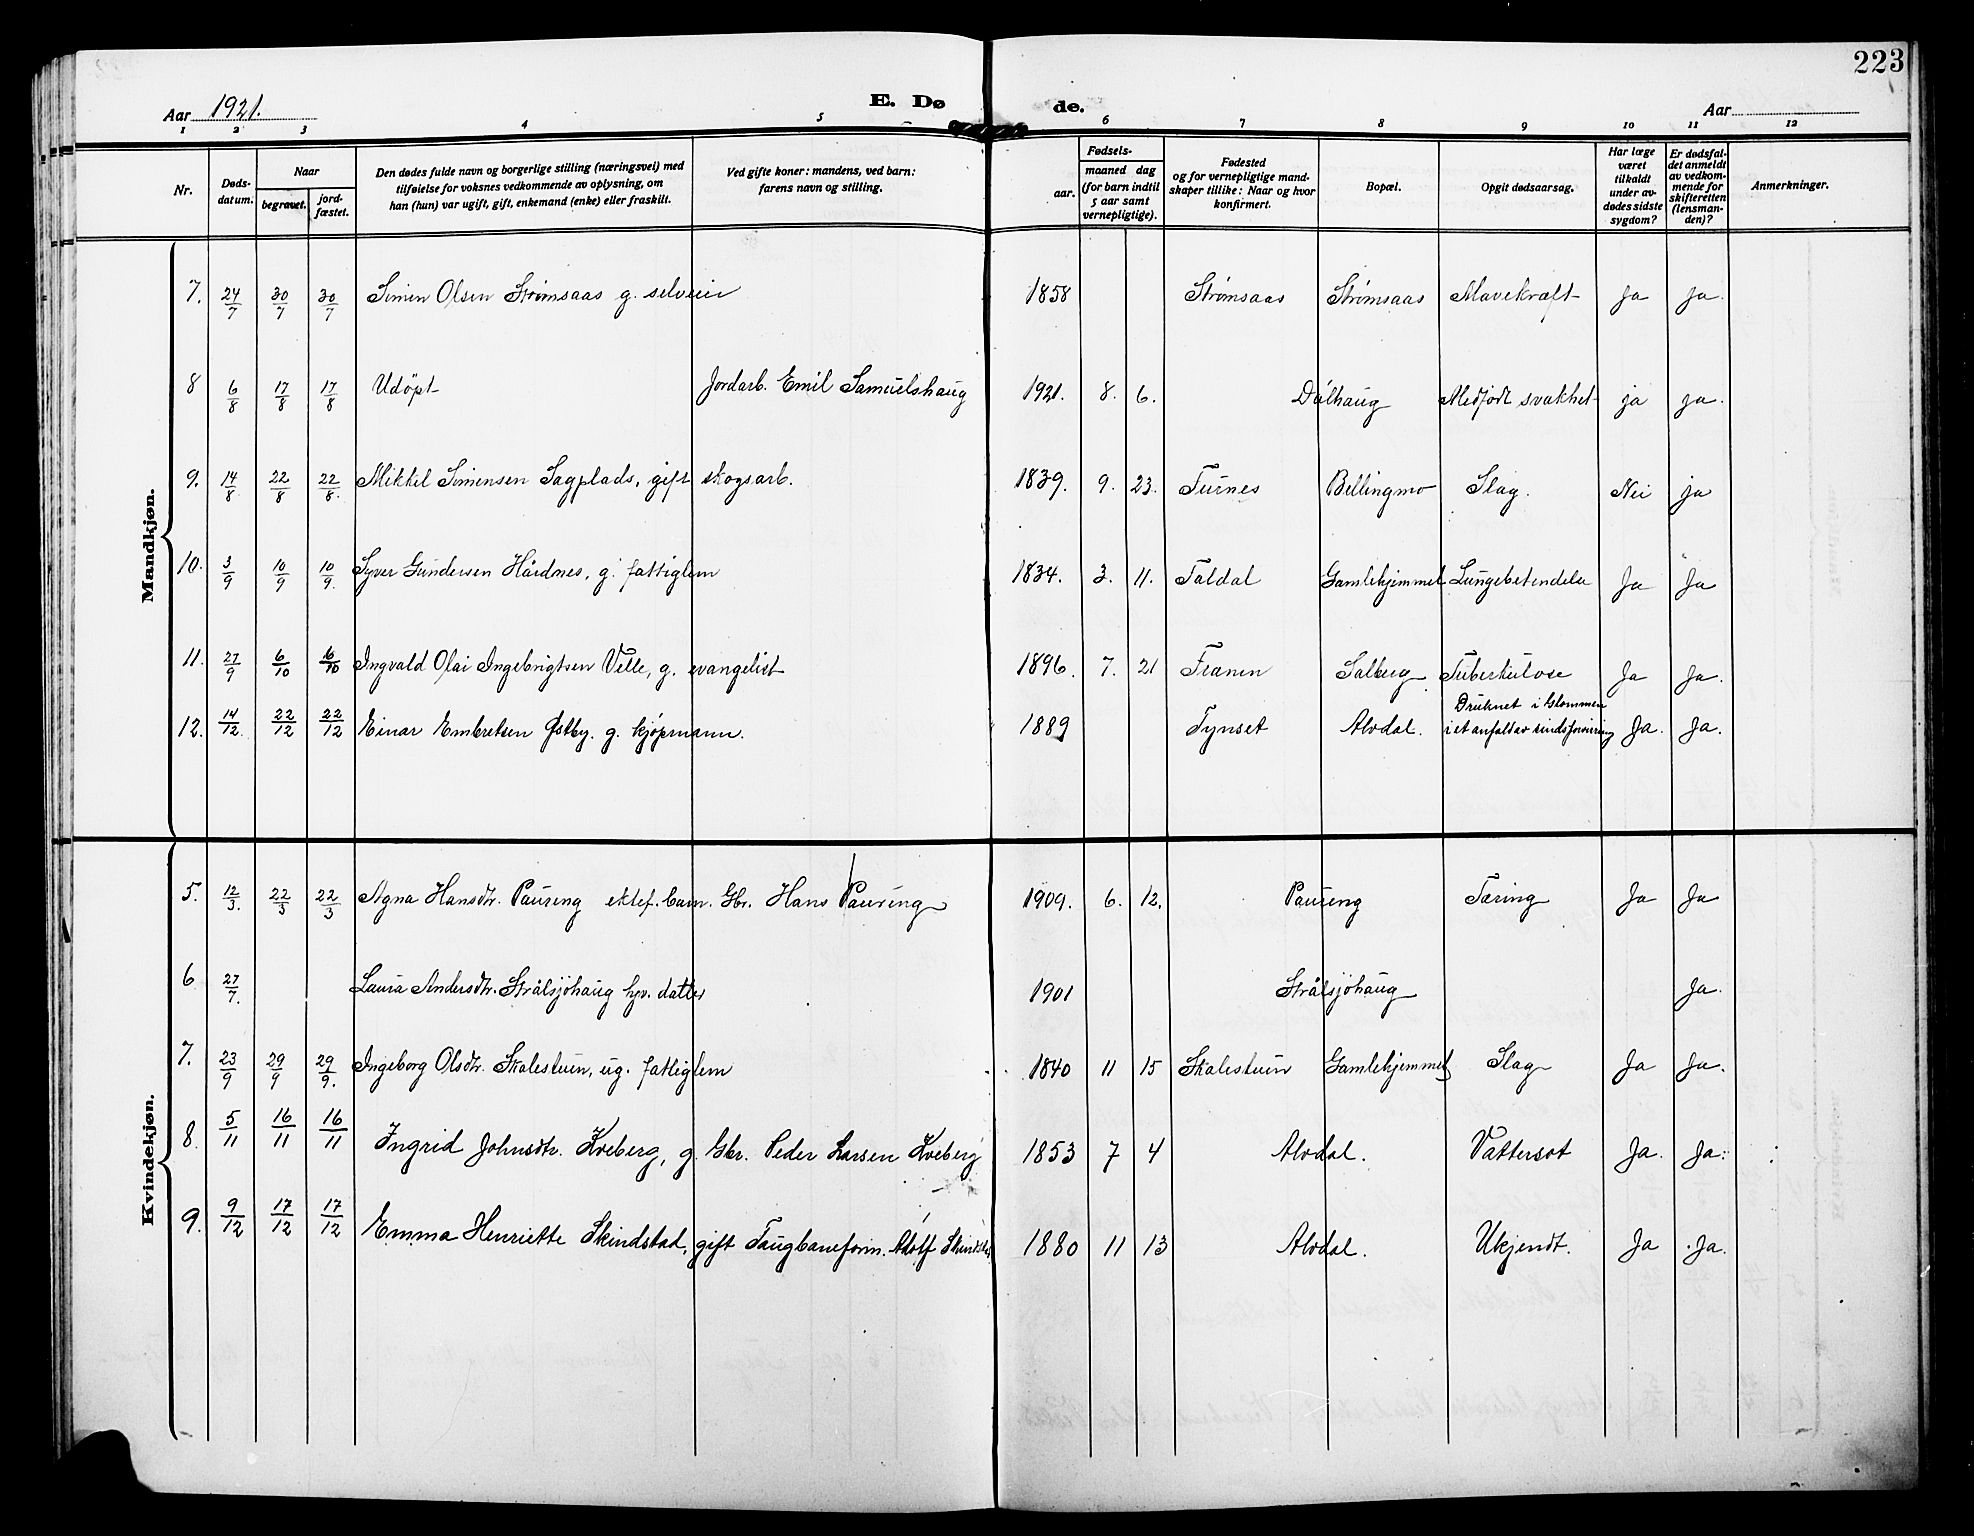 223
Aar 1921. E. Dø de. Aar
1 2 3 4 5 6 7 8 9 10 11 12
Nr. Døds-datum. Naar begravet. jord-fæstet. Den dødes fulde navn og borgerlige stilling (næringsvei) med tilføielse for voksnes vedkommende av oplysning, om han (hun) var ugift, gift, enkemand (enke) eller fraskilt. Ved gifte koner: mandens, ved barn: farens navn og stilling. Fødsels- aar. maaned dag (for barn indtil 5 aar samt vernepligtige). Fødested og for vernepligtige mand-skaper tillike: Naar og hvor konfirmert. Bopæl. Opgit dødsaarsag. Har læge været tilkaldt under av-dødes sidste sygdom? Er dødsfal-det anmeldt av vedkom-mende for skifteretten (lensman-den)? Anmerkninger.
Mandkjøn.
7. 24/7 30/7 30/7 Simen Olsen Strømsaas g. selveier 1858 Strømsaas Strømsaas Mavekræft Ja Ja.
8 6/8 17/8 17/8 Udöpt Jordarb. Emil Samuelshaug 1921. 8. 6. Dölhaug Medfödt svakhet ja ja.
9. 14/8 22/8 22/8. Mikkel Simensen Sagplads, gift skogsarb. 1839. 9. 23. Furnes Bellingmo Slag. Nei ja
10. 3/9 10/9 10/9. Syver Gundersen Hårdnes, g. fattiglem 1834. 3. 11. Foldal Gamlehjemmet Lungebetendelse Ja Ja
11. 27/9 6/10 6/10 Ingvald Olai Ingebrigtsen Velle, g. evangelist 1896. 7. 21 Franen Salberg Tuberkulose Ja Ja.
12. 14/12. 22/12 22/12 Einar Embretsen Østby. g. kjøpmann. 1889 Tynset Alvdal. Druknet i Glommen
i et anfald av sindsforvirring Ja. Ja.
Kvindekjøn.
5. 12/3. 22/3 22/3 Agna Hansdtr. Paureng ektef. barn. Gbr. Hans Paureng 1909. 6. 12. Paureng Tæring Ja Ja
6 27/7. Laura Andersdtr. Strålsjöhaug hjv. datter 1901 Strålsjöhaug Ja.
7. 23/9 29/9 29/9. Ingeborg Olsdtr. Skalestuen, ug. fattiglem 1840 11 15 Skalestuen Gamlehjemmet Slag Ja Ja.
8. 5/11 16/11 16/11 Ingrid Johnsdtr. Kveberg, g. Gbr. Peder Larsen Kveberg 1853 7 4 Alvdal. Vattersot Ja. Ja.
9. 9/12 17/12 17/12 Emma Henriette Skindstad, gift Taugbaneform. Adolf 1880 11 13 Alvdal. Ukjendt. Ja Ja.